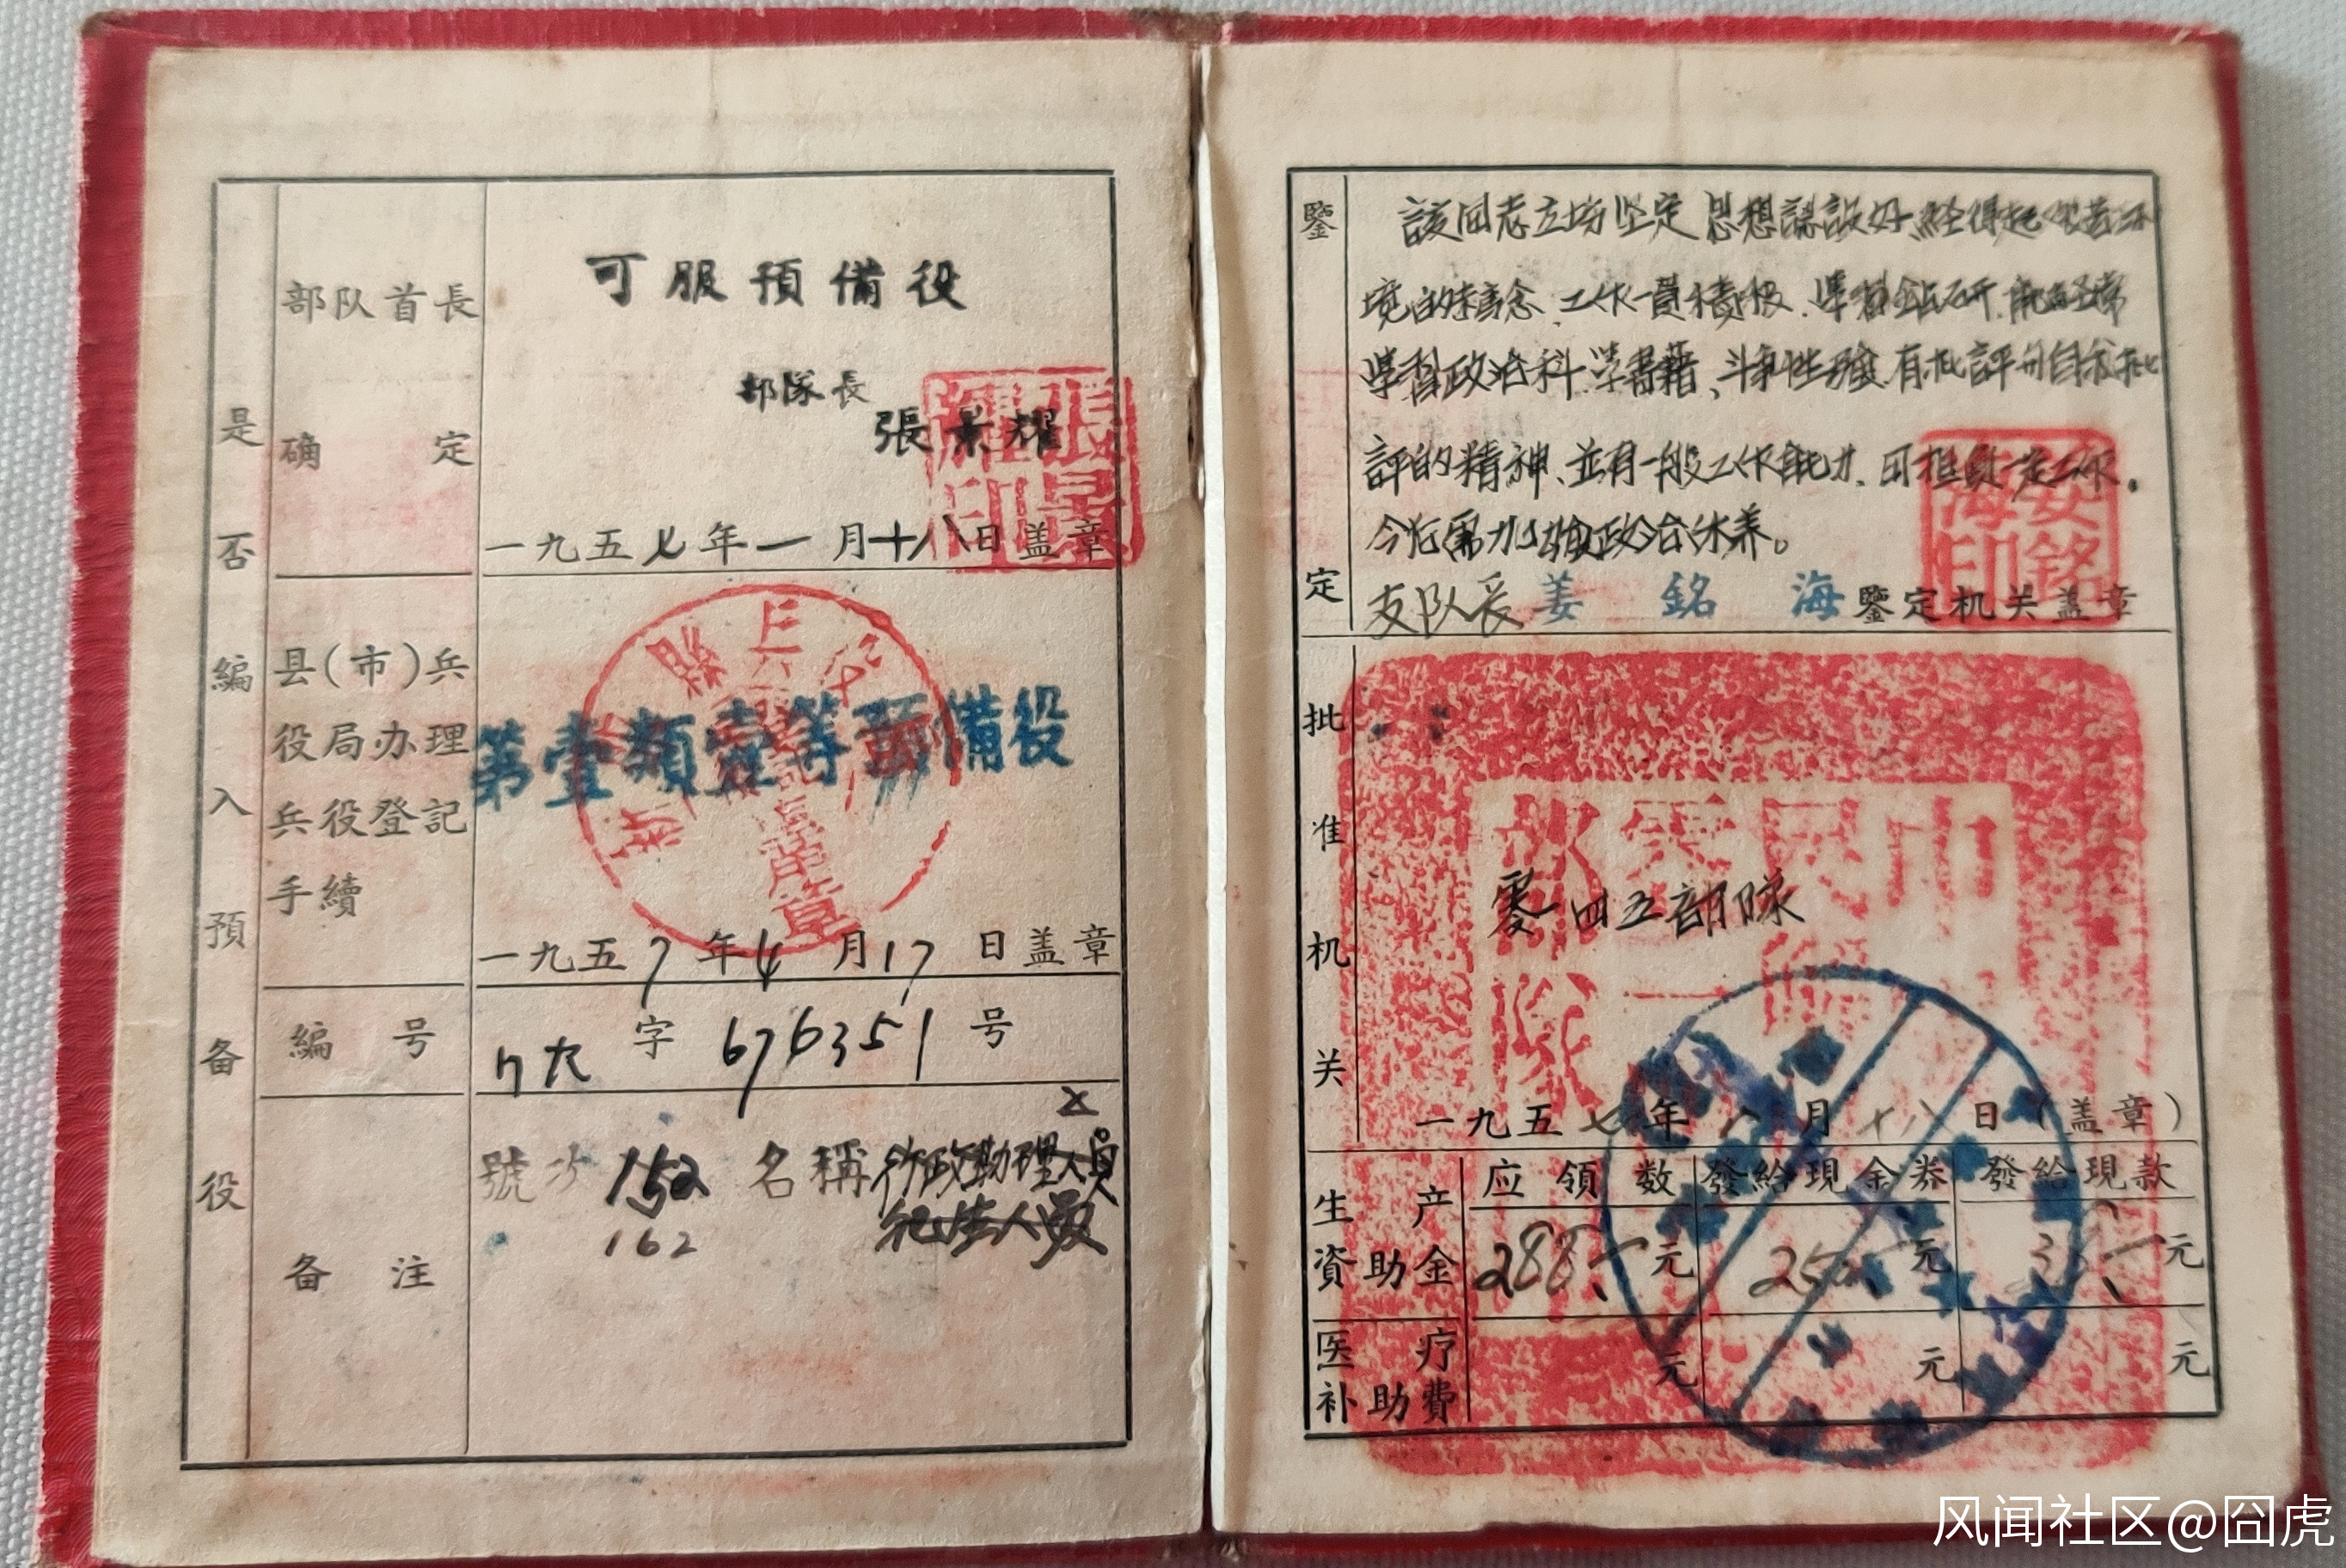 是否編入預备役
部队首長
确定
可服預備役
部隊長
張景耀
張景耀印
一九五七年一月十八日盖章
县(市)兵
役局办理
兵役登記
手續
縣兵役
第壹類壹等預備役
一九五7年4月17日盖章
編号
字676351号
备注
號次 152 名稱 行政助理人員
162
鑒定
該同志立場坚定 思想謙設好 經得起艰苦环
境的 工作一貫積极.學習鈷研.能經常
學習政治科學書籍、斗争性强 有批評与自我批
評的精神、並有一般工作能力.可担負一定工作.
今后需加强政治休养。
支队长 姜銘海 鑒定机关盖章
姜銘海印
批准机关
零一四五部隊
一九五七年 月十八日(盖章)
生产
資助金
应領数
發給現金券
發給現款
288元
250元
38元
医疗
补助費
元
元
元
风闻社区@囧虎